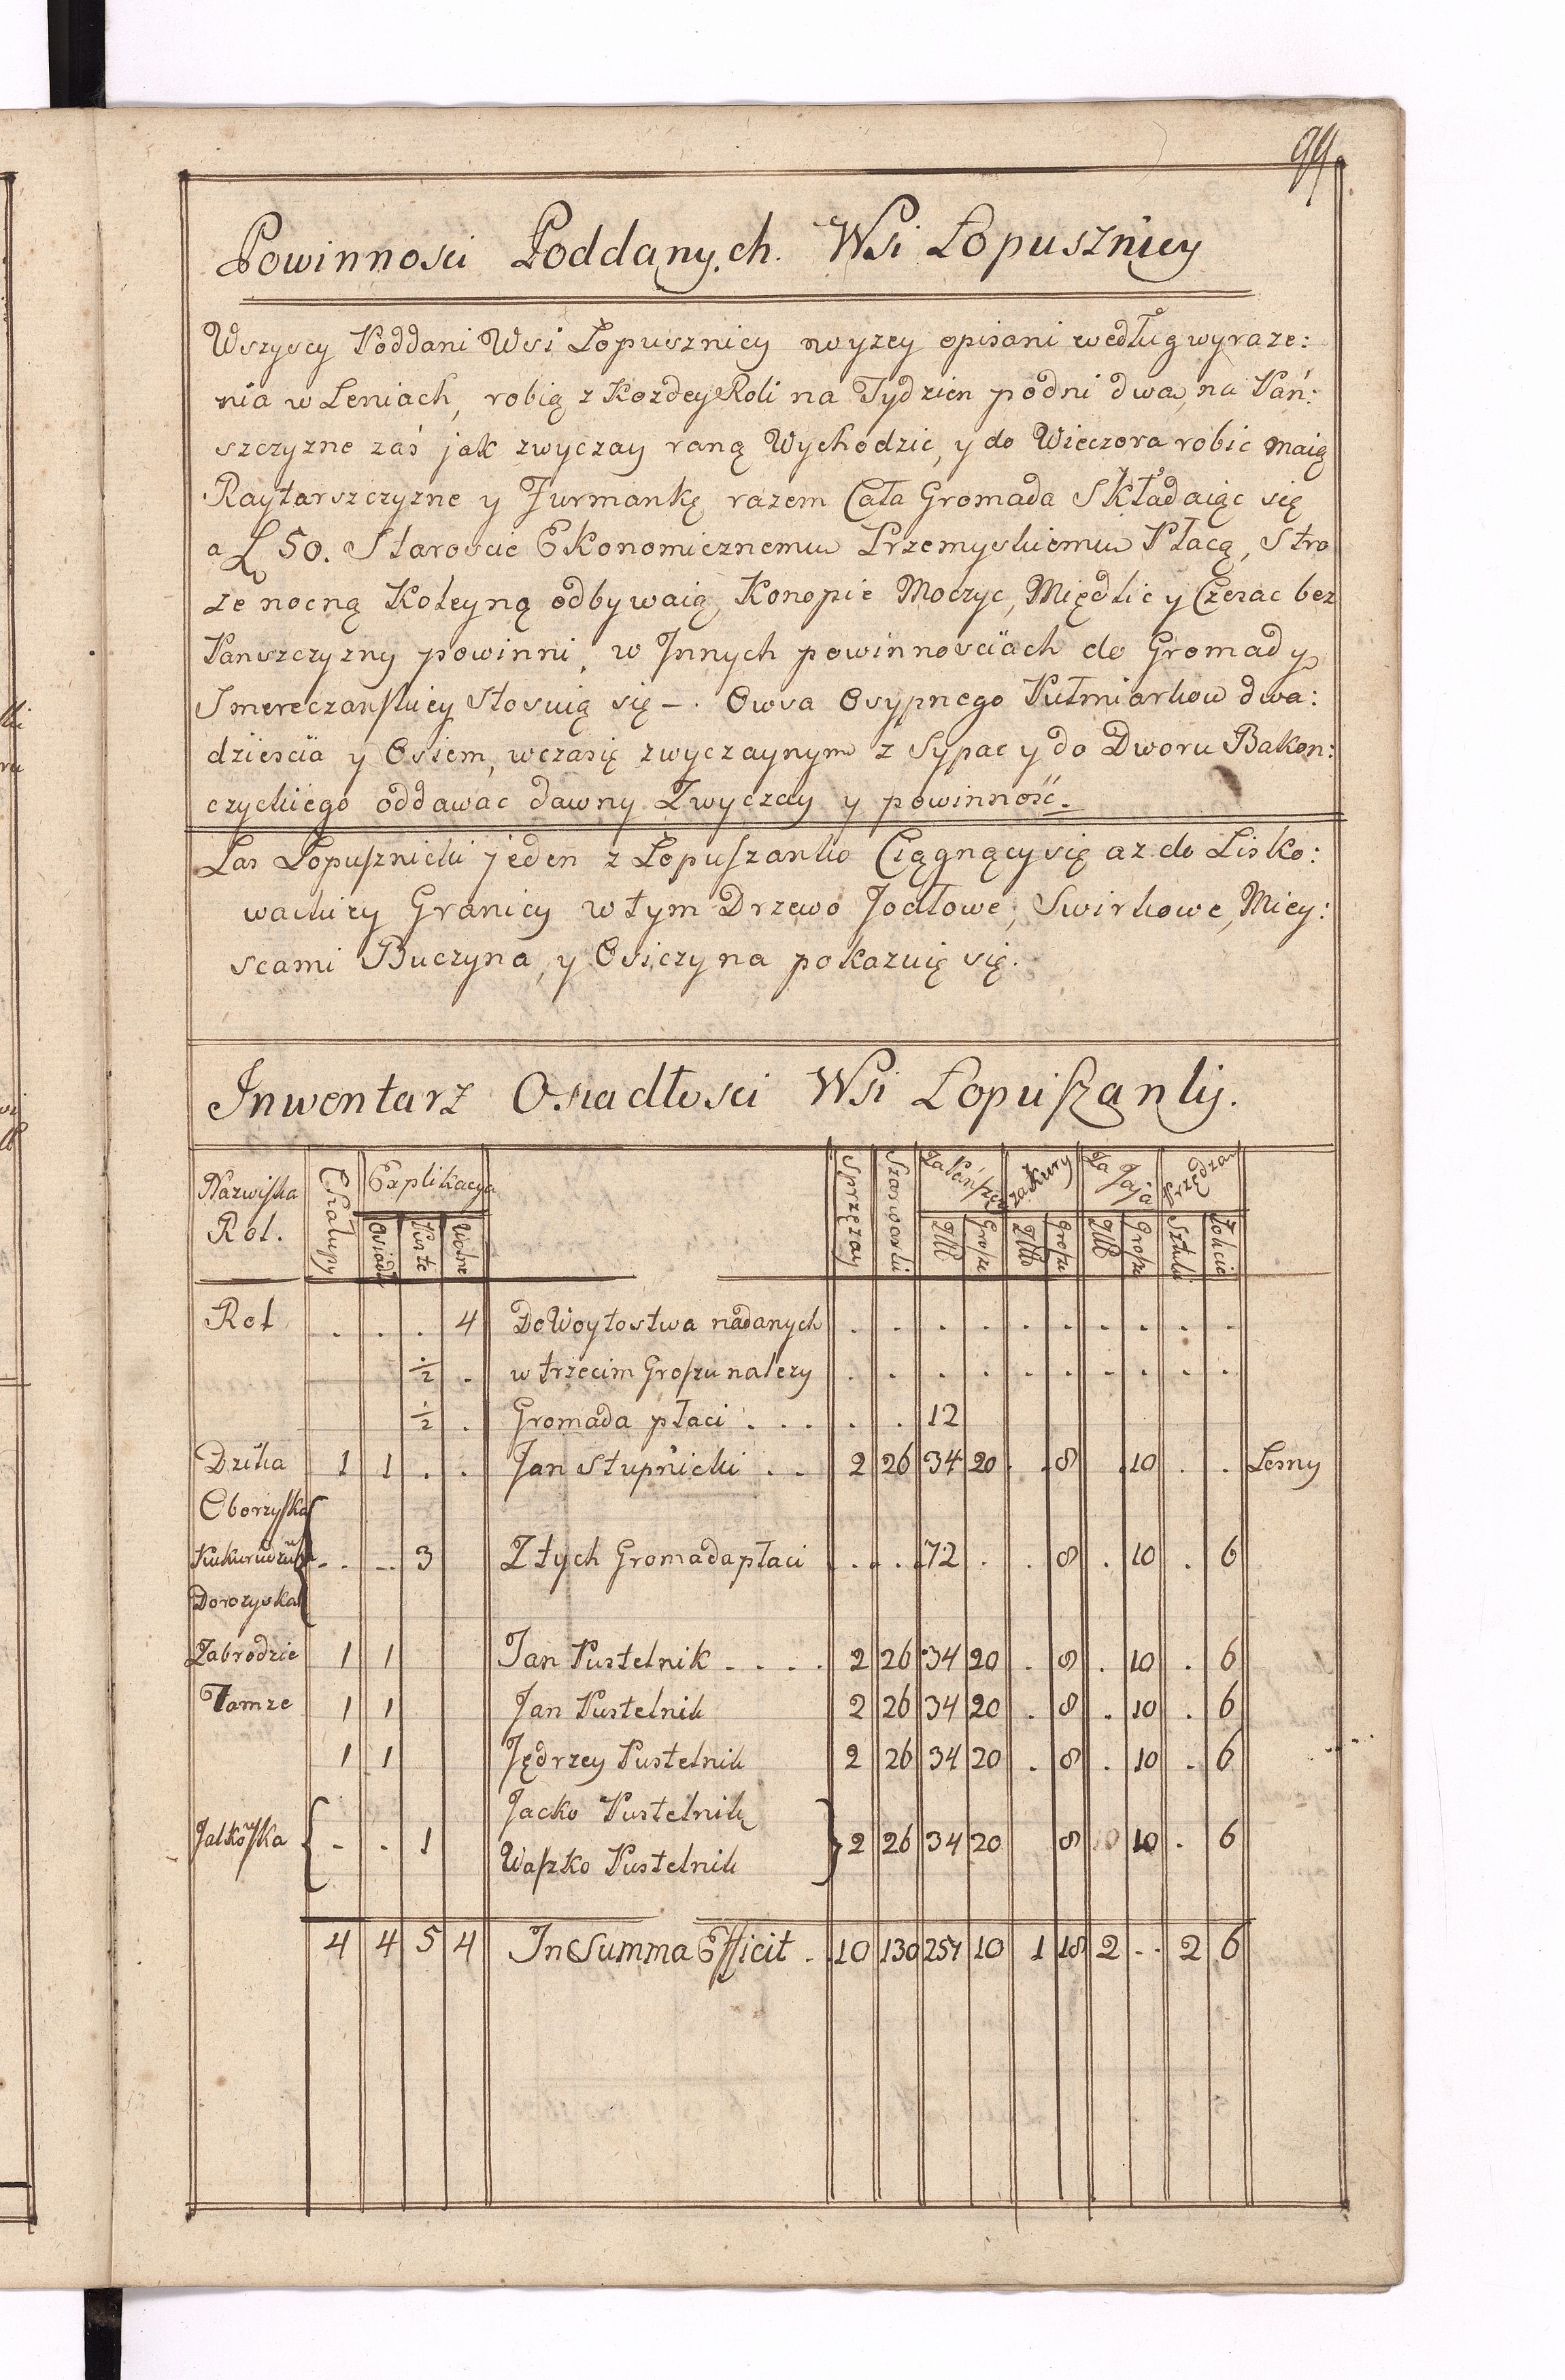 99
Powinnosci Poddanych. Wsi Łopusznicy
Wszyscy Poddani Wsi Łopusznicy wyzey opisani według wyraze:
nia w Leniach, robią z Kozdey Roli na Tydzien podni dwa, na Pań:
szczyzne zaś jak zwyczay raną Wychodzic, y do Wieczora robic maią
Raytarszczyzne y Furmankę razem Cała Gromada Składaiąc się
a 50. Staroscie Ekonomicznemu Przemyskiemu Płacą, Stro
ze nocną Koleyną odbywaią, Konopie Moczyc, Międlic y Czesac bez
Panszczyzny powinni, w Jnnych powinnosciach do Gromady
Smereczanskiey Stosuią się –. Owsa Osypnego Pułmiarkow dwa:
dziescia y Osiem, wczasię zwyczaynym z Sypac y do Dworu Bakon:
czyckiego oddawac dawny Zwyczay y powinność.
Las Łopusznicki jeden z Łopuszanko Ciągnący się az do Lisko:
wackiey Granicy w tym Drzewo Jodłowe, Swirkowe, Miey:
scami Buczyna, y Osiczyna pokazuię się.
Jnwentarz Osiadłosci Wsi Łopuszanky.
Nazwiska Rol. Chałupy Explikacya Sprzęzay Szarwarki Za Pańszcz za Kury Za Jaja Przędza
Osiadł Puste Wolne Grosze Grosze Grosze Sztuki Łokcie
Rol . . . 4 Do Woytostwa nadanych . . . . . . . . . .
½ . w trzecim Groszu nalezy . . . . . . . . . .
½ . Gromada płaci . . . . . 12
Dzika 1 1 . . Jan Stupnicki . . 2 26 34 20 . . 8 . 10 . . Lesny
Oborzyska
Kukurudzuska . . . 3 Z tych Gromada płaci . . . . 72 . . 8 . 10 . 6
Dorozyska
Zabrodzie 1 1 Jan Pustelnik . . . . 2 26 34 20 . 8 . 10 . 6
Tamze 1 1 Jan Pustelnik 2 26 34 20 . 8 . 10 . 6
1 1 Jędrzey Pustelnik 2 26 34 20 . 8 . 10 . 6
Jacko Pustelnik
. . 1 2 26 34 20 8 10 . 6
Waszko Pustelnik
4 4 5 4 Jn Summa Efficit . . 10 130 257 10 1 18 2 . . 2 6